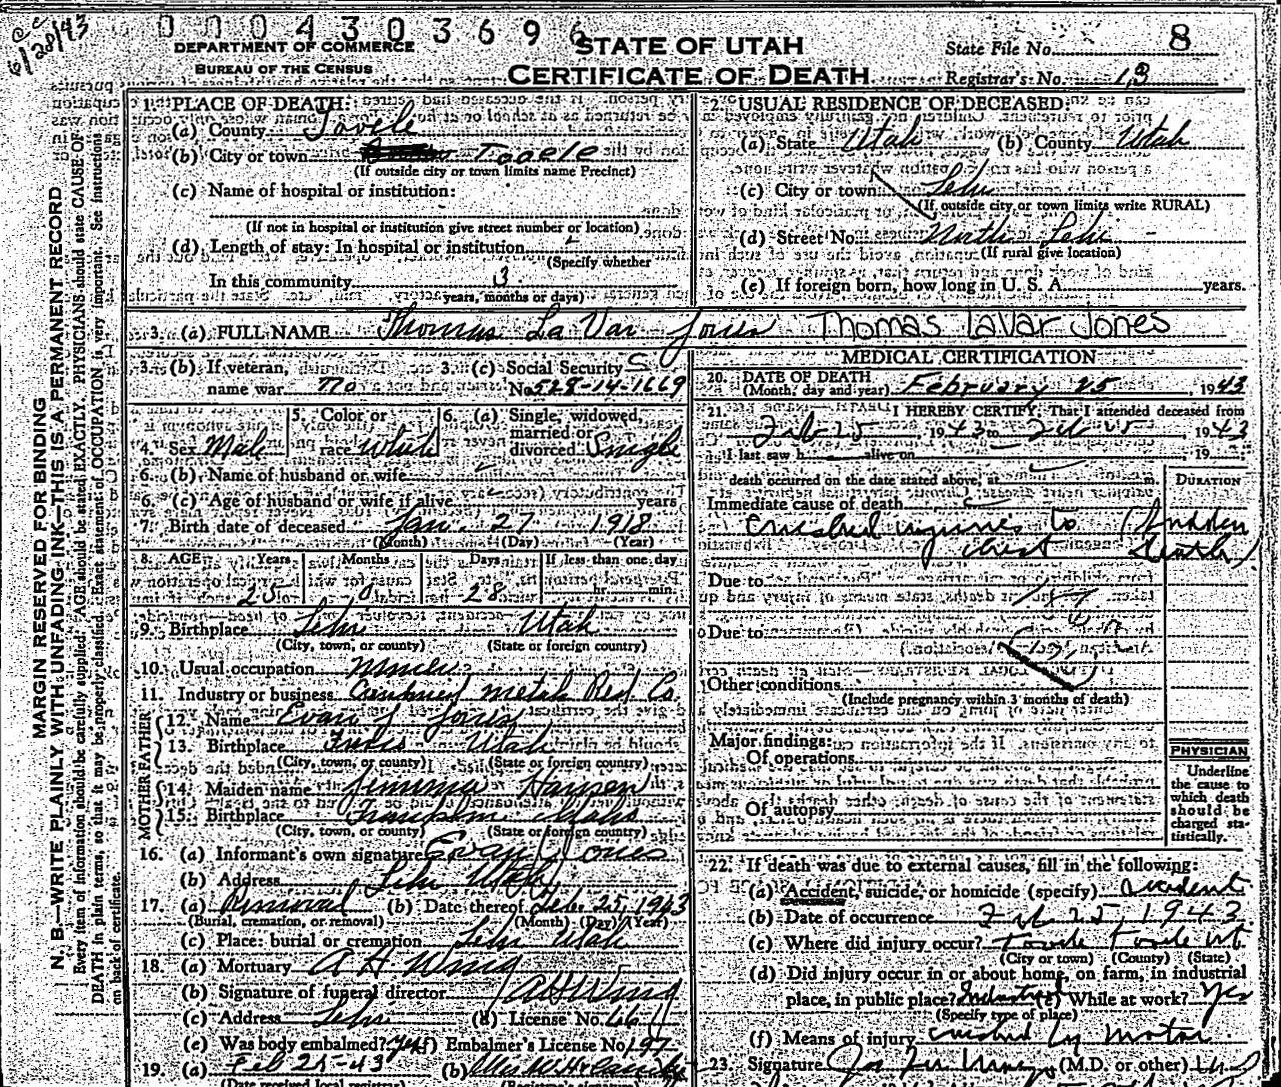 6/28/43
0004303696
DEPARTMENT OF COMMERCE
BUREAU OF THE CENSUS
STATE OF UTAH
CERTIFICATE OF DEATH
State File No. 8
Registrar's No. 13
MARGIN RESERVED FOR BINDING
N. B.—WRITE PLAINLY WITH UNFADING INK—THIS IS A PERMANENT RECORD
Every item of information should be carefully supplied. AGE should be stated EXACTLY. PHYSICIANS should state CAUSE OF
DEATH in plain terms, so that it may be properly classified. Exact statement of OCCUPATION is very important. See instructions
on back of certificate.
1. PLACE OF DEATH:
(a) County Tooele
(b) City or town Tooele
(If outside city or town limits name Precinct)
(c) Name of hospital or institution:
(If not in hospital or institution give street number or location)
(d) Length of stay: In hospital or institution
(Specify whether
In this community 3
years, months or days)
2. USUAL RESIDENCE OF DECEASED:
(a) State Utah (b) County Utah
(c) City or town Lehi
(If outside city or town limits write RURAL)
(d) Street No. North Lehi
(If rural give location)
(e) If foreign born, how long in U. S. A. years.
3. (a) FULL NAME Thomas La Var Jones Thomas LaVar Jones
3. (b) If veteran, name war no
3. (c) Social Security No. 528-14-1669
4. Sex Male
5. Color or race white
6. (a) Single, widowed, married or divorced Single
6. (b) Name of husband or wife
6. (c) Age of husband or wife if alive years
7. Birth date of deceased Jan. 27 1918
(Month) (Day) (Year)
8. AGE Years Months Days If less than one day
25 0 28 hr. min.
9. Birthplace Lehi Utah
(City, town, or county) (State or foreign country)
10. Usual occupation Miner
11. Industry or business Combined metals Red Co.
FATHER
12. Name Evan J Jones
13. Birthplace Utah
(City, town, or county) (State or foreign country)
MOTHER
14. Maiden name Hansen
15. Birthplace Idaho
(City, town, or county) (State or foreign country)
16. (a) Informant's own signature Evan J Jones
(b) Address Lehi Utah
17. (a) Removal (b) Date thereof Feb. 25, 1943
(Burial, cremation, or removal) (Month) (Day) (Year)
(c) Place: burial or cremation Lehi Utah
18. (a) Mortuary A H Wing
(b) Signature of funeral director A H Wing
(c) Address Lehi (d) License No. 66
(e) Was body embalmed? yes (f) Embalmer's License No. 197
19. (a) Feb 25-43 (b)
(Date received local registrar) (Registrar's signature)
MEDICAL CERTIFICATION
20. DATE OF DEATH
(Month, day and year) February 25, 1943
21. I HEREBY CERTIFY, That I attended deceased from
Feb 25, 1943 to Feb 25, 1943
I last saw h alive on , 19
death occurred on the date stated above, at m.
DURATION
Immediate cause of death
Crushed injuries to chest (Sudden death)
Due to
Due to
Other conditions
(Include pregnancy within 3 months of death)
Major findings:
Of operations
Of autopsy
PHYSICIAN
Underline the cause to which death should be charged statistically.
22. If death was due to external causes, fill in the following:
(a) Accident, suicide, or homicide (specify) accident
(b) Date of occurrence Feb 25, 1943
(c) Where did injury occur? Tooele Tooele Ut.
(City or town) (County) (State)
(d) Did injury occur in or about home, on farm, in industrial
place, in public place? Industry (e) While at work? Yes
(Specify type of place)
(f) Means of injury crushed by motor
23. Signature (M.D. or other)